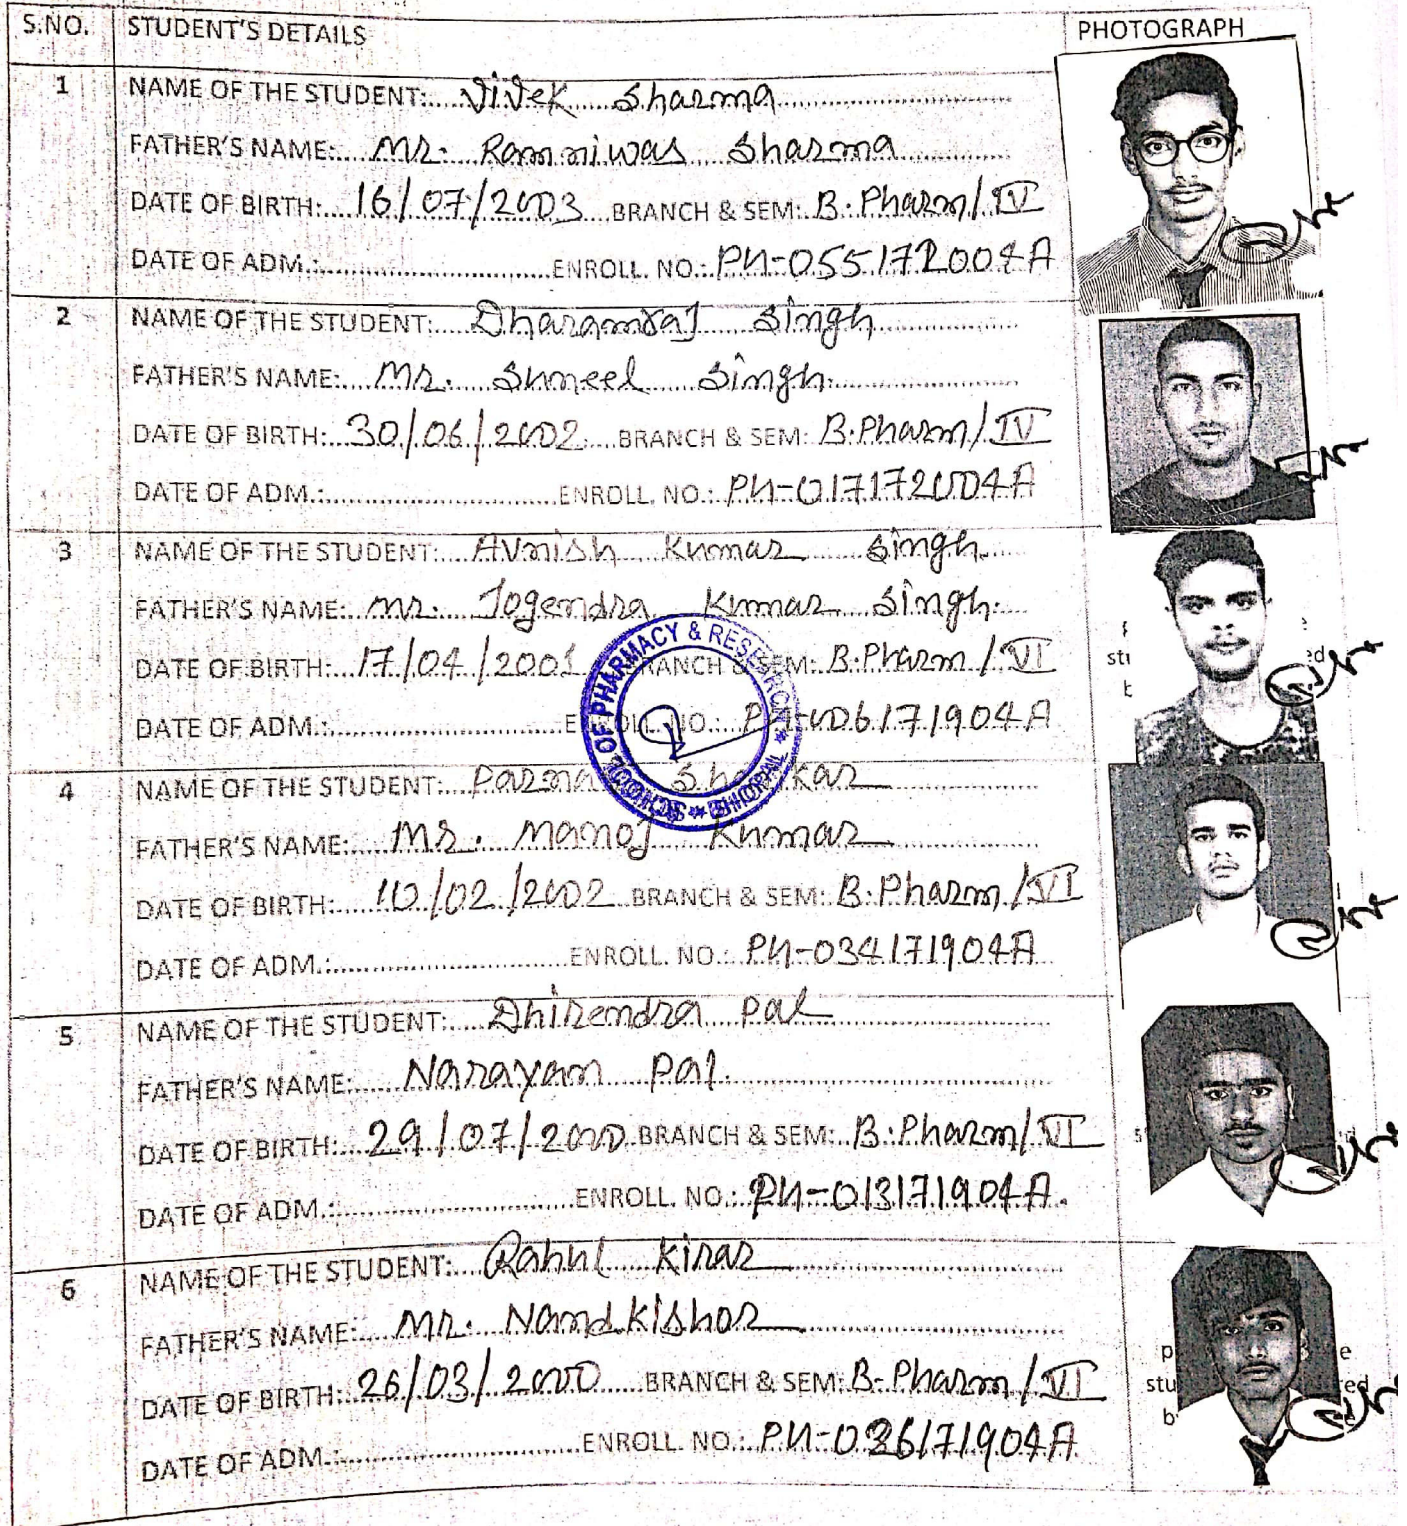 S.NO. STUDENT'S DETAILS PHOTOGRAPH
1 NAME OF THE STUDENT: Vivek Sharma
FATHER'S NAME: Mr. Ramniwas Sharma
DATE OF BIRTH: 16/07/2003 BRANCH & SEM: B.Pharm/IV
DATE OF ADM.: ENROLL. NO.: PU-055172004A
2 NAME OF THE STUDENT: Dharamraj Singh
FATHER'S NAME: Mr. Suneel Singh
DATE OF BIRTH: 30/06/2002 BRANCH & SEM: B.Pharm/IV
DATE OF ADM.: ENROLL. NO.: PU-017172004A
3 NAME OF THE STUDENT: Avnish Kumar Singh
FATHER'S NAME: Mr. Jogendra Kumar Singh
DATE OF BIRTH: 17/04/2001 BRANCH & SEM: B.Pharm/VI
DATE OF ADM.: ENROLL. NO.: PU-006171904A
4 NAME OF THE STUDENT: Shankar
FATHER'S NAME: Mr. Manoj Kumar
DATE OF BIRTH: 10/02/2002 BRANCH & SEM: B.Pharm/VI
DATE OF ADM.: ENROLL. NO.: PU-034171904A
5 NAME OF THE STUDENT: Dhirendra Pal
FATHER'S NAME: Narayan Pal
DATE OF BIRTH: 29/07/2000 BRANCH & SEM: B.Pharm/VI
DATE OF ADM.: ENROLL. NO.: PU-013171904A
6 NAME OF THE STUDENT: Rahul Kirar
FATHER'S NAME: Mr. Nandkishor
DATE OF BIRTH: 26/03/2000 BRANCH & SEM: B-Pharm/VI
DATE OF ADM.: ENROLL. NO.: PU-036171904A
SCHOOL OF PHARMACY & RESEARCH * BHOPAL *